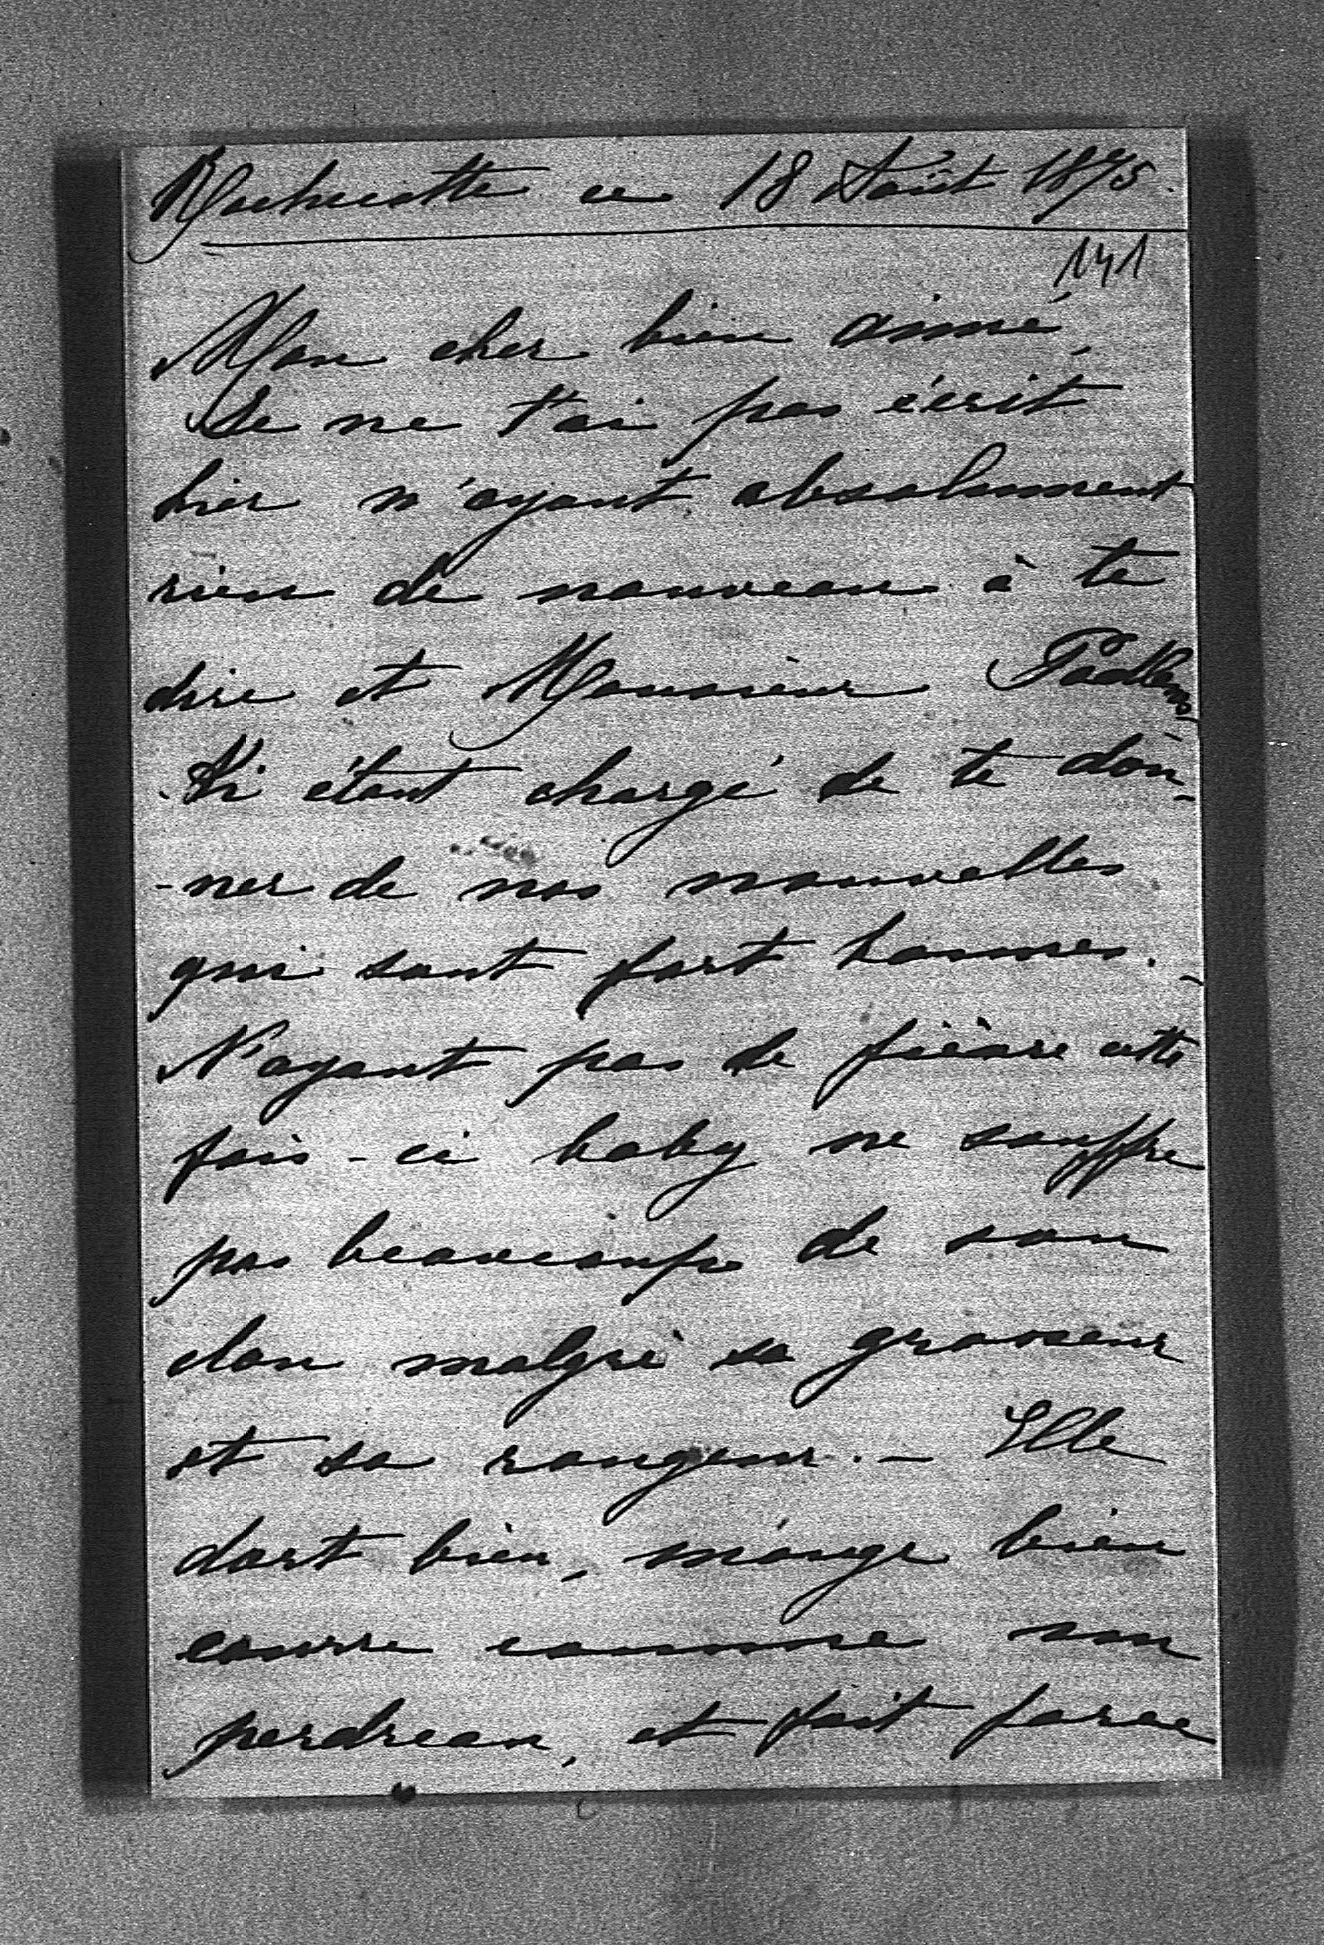 Rochecotte ce 18 Août 1875.
141
Mon cher bien aimé,
Je ne t'ai pas écrit
hier n'ayant absolument
rien de nouveau à te
dire et Monsieur
étant chargé de te don-
-ner de nos nouvelles
qui sont fort bonnes. -
N'ayant pas de fièvre cette
fois-ci baby ne souffre
pas beaucoup de son
clou malgré sa grosseur
et sa rougeur. - Elle
dort bien, mange bien
courre comme un
perdreau, et fait farce